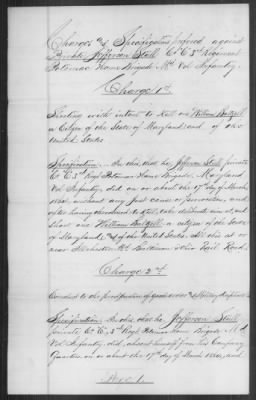 Charges and Specifications prefered against
Private Jefferson Stall Co "C" 3rd Regiment
Potomac Home Brigade Md Vol Infantry.
Charge 1st
Shooting with intent to Kill one William
a Citizen of the State of Maryland and of the
United States
Specification In this that he, Jefferson Stall private
Co "C" 3rd Regt Potomac Home Brigade, Maryland
Vol Infantry, did on or about the 17th day of March
1864, without any just cause or provocation, and
after having threatened to, take deliberate aim at and
shoot one William a citizen of the State
of Maryland, and of the United States. All this at or
near Md Baltimore & Ohio Rail Road.
Charge 2nd
Conduct to the prejudice of good order and Military discipline
Specification In this that he, Jefferson Stall
private Co "C", 3rd Regt Potomac Home Brigade Md
Vol Infantry, did absent himself from his Company
Quarters on or about the 17th day of March 1864, and